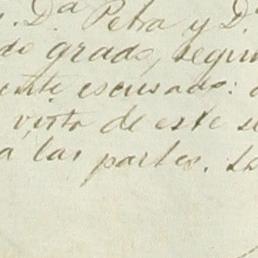 . D.ª Petra y D.
do grado, segun
ente escusado:
visto de este se
a las partes. Lo